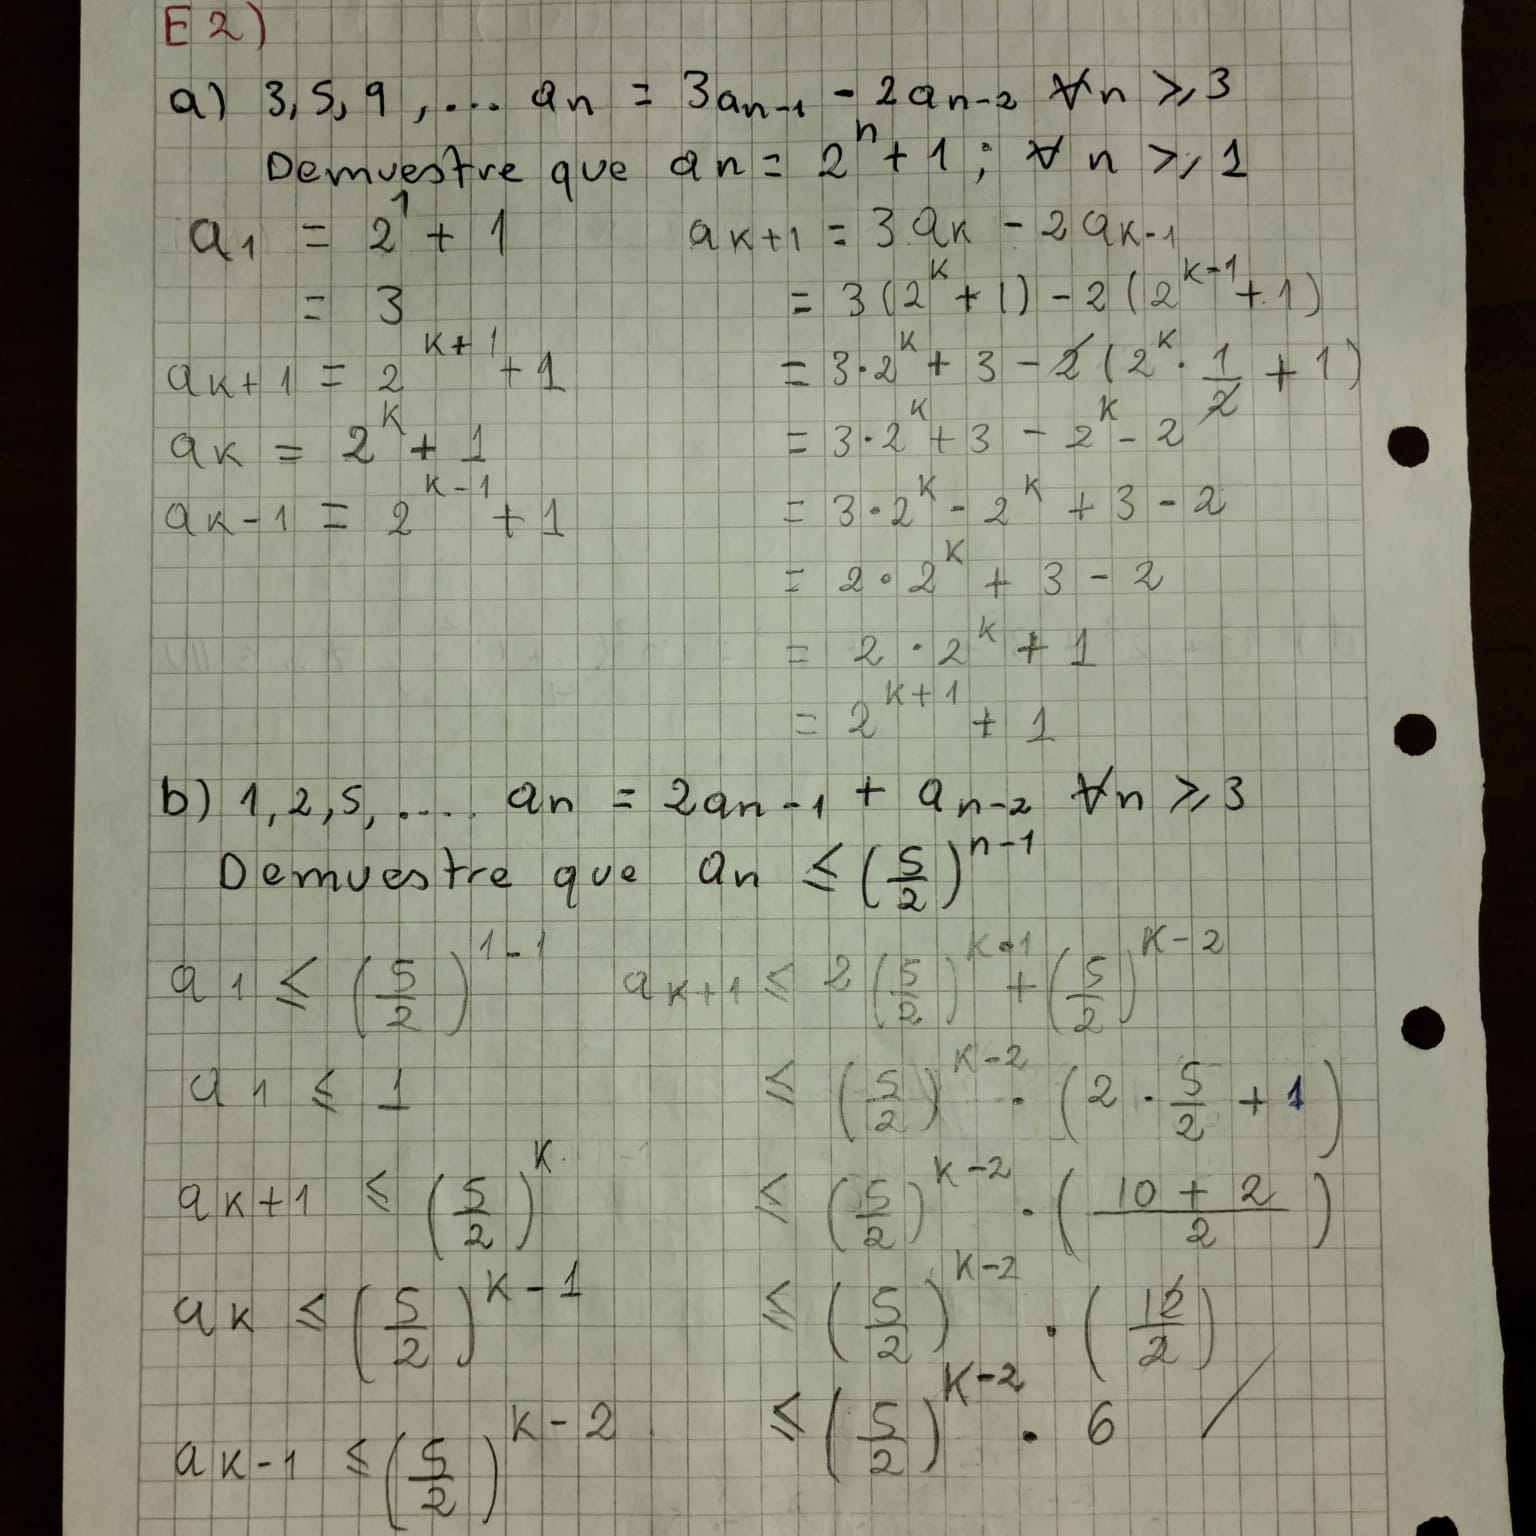 E 2)
a) 3, 5, 9, ... an = 3an-1 - 2an-2 ∀n ≥ 3
Demuestre que an = 2^n + 1 ; ∀ n ≥ 1
a1 = 2^1 + 1
= 3
ak+1 = 2^k+1 + 1
ak = 2^k + 1
ak-1 = 2^k-1 + 1
ak+1 = 3ak - 2ak-1
= 3(2^k + 1) - 2(2^k-1 + 1)
= 3·2^k + 3 - 2(2^k · 1/2 + 1)
= 3·2^k + 3 - 2^k - 2
= 3·2^k - 2^k + 3 - 2
= 2·2^k + 3 - 2
= 2·2^k + 1
= 2^k+1 + 1
b) 1, 2, 5, .... an = 2an-1 + an-2 ∀n ≥ 3
Demuestre que an ≤ (5/2)^n-1
a1 ≤ (5/2)^1-1
a1 ≤ 1
ak+1 ≤ (5/2)^k
ak ≤ (5/2)^k-1
ak-1 ≤ (5/2)^k-2
ak+1 ≤ 2(5/2)^k-1 + (5/2)^k-2
≤ (5/2)^k-2 · (2 · 5/2 + 1)
≤ (5/2)^k-2 · (10 + 2/2)
≤ (5/2)^k-2 · (12/2)
≤ (5/2)^k-2 · 6 /